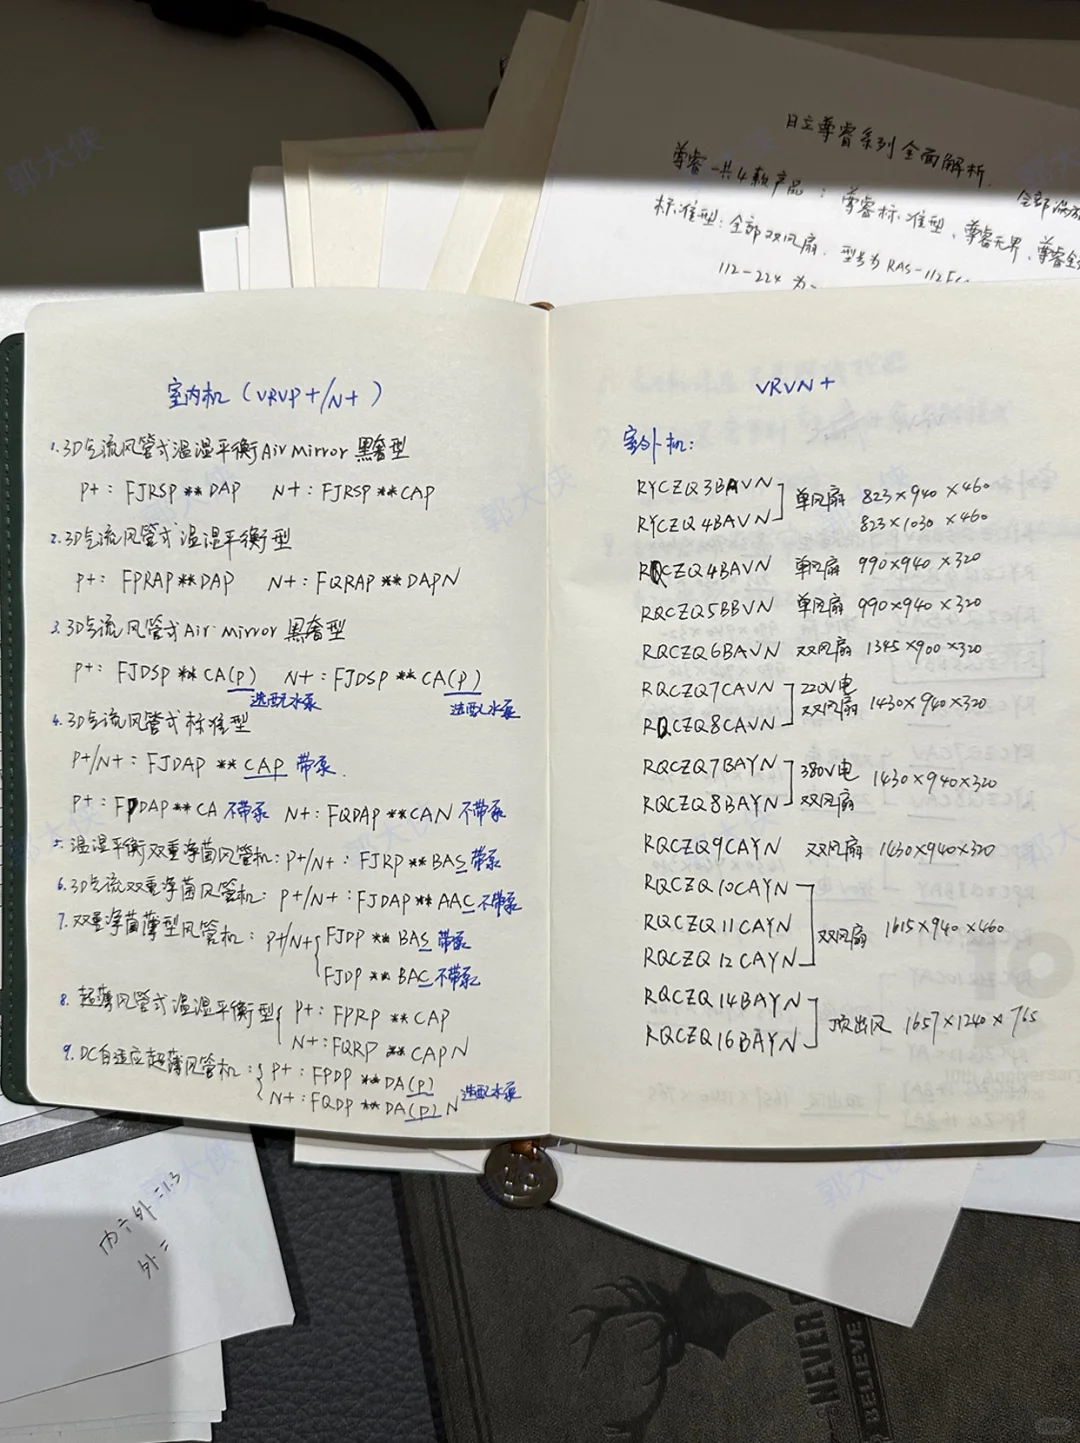 日立尊睿系列全面解析.
尊睿一共4款产品： 全部
标准型：全部双风扇、型号为RAS-112F
尊睿标准型、尊睿无界、尊睿全
112-224 为
室内机（VRVP+/N+）
1.3D气流风管式温湿平衡Air Mirror 黑奢型
P+：FJRSP**DAP N+：FJRSP**CAP
2.3D气流风管式温湿平衡型
P+：FPRAP**DAP N+：FQRAP**DAPN
3.3D气流风管式Air Mirror黑奢型
P+：FJDSP**CA(P) N+：FJDSP**CA(P)
选配水泵 选配水泵
4.3D气流风管式标准型
P+/N+：FJDAP**CAP 带泵.
P+：FPDAP**CA 不带泵 N+：FQDAP**CAN 不带泵
5.温湿平衡双重净菌风管机：P+/N+：FJRP**BAS 带泵
6.3D气流双重净菌风管机：P+/N+：FJDAP**AAC 不带泵
7.双重净菌薄型风管机：P+/N+{FJDP**BAS 带泵
FJDP**BAC 不带泵
8.超薄风管式温湿平衡型{P+：FPRP**CAP
N+：FQRP**CAPN
9.DC自适应超薄风管机：{P+：FPDP**DA(P)
N+：FQDP**DA(P)N 选配水泵
VRVN+
室外机：
RYCZQ3BAVN 单风扇 823×940×460
RYCZQ4BAVN 823×1030×460
RQCZQ4BAVN 单风扇 990×940×320
RQCZQ5BBVN 单风扇 990×940×320
RQCZQ6BAVN 双风扇 1345×900×320
RQCZQ7CAVN 220V电
RQCZQ8CAVN 双风扇 1430×940×320
RQCZQ7BAYN 380V电
RQCZQ8BAYN 双风扇 1430×940×320
RQCZQ9CAYN 双风扇 1430×940×320
RQCZQ10CAYN
RQCZQ11CAYN 双风扇 1615×940×460
RQCZQ12CAYN
RQCZQ14BAYN 顶出风 1657×1240×765
RQCZQ16BAYN
内÷外=1.3
外=
NEVER
BELIEVE
郭大侠